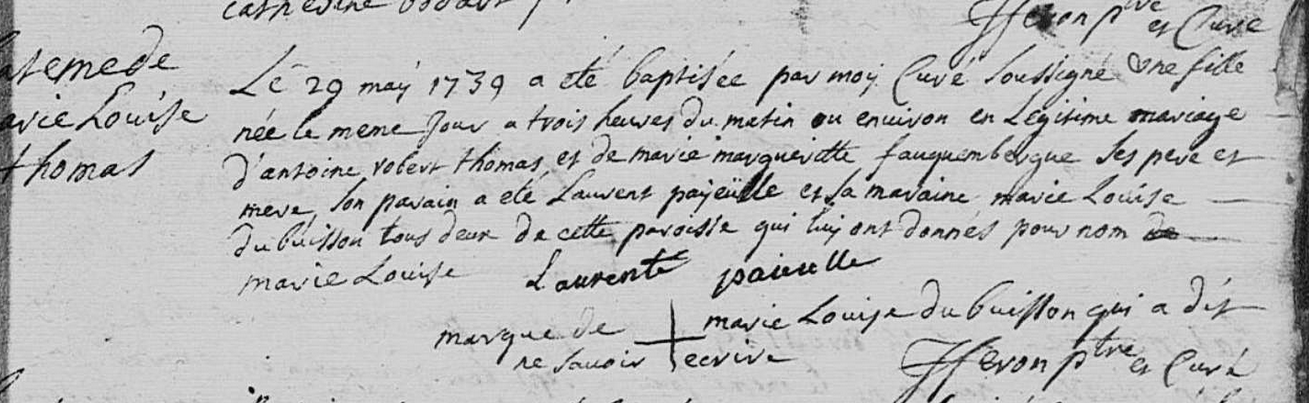 catherine
JJferon ptre et Curé
Bateme de
marie Louise
thomas
Le 29 may 1739 a eté baptisée par moy Curé soussigné une fille
née le meme jour a trois heures du matin ou environ en Légitime mariage
d'antoine robert thomas et de marie margueritte fauquembergue ses pere et
mere, son parain a eté Laurent payëulle et sa maraine marie Louise
du buisson tous deux de cette paroisse qui luy ont donnés pour nom de
marie Louise Laurente paieulle
marque de + marie Louise du buisson qui a dit
ne savoir ecrire
JJferon ptre et Curé